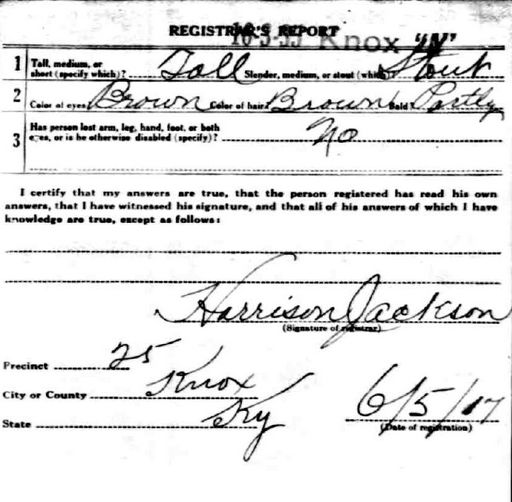 REGISTRAR'S REPORT
Knox "A"
1 Tall, medium, or short (specify which)? Tall Slender, medium, or stout (which)? Stout
2 Color of eyes Brown Color of hair Brown Bald? Partly
3 Has person lost arm, leg, hand, foot, or both
eyes, or is he otherwise disabled (specify)? No
I certify that my answers are true, that the person registered has read his own
answers, that I have witnessed his signature, and that all of his answers of which I have
knowledge are true, except as follows:
Harrison Jackson
(Signature of registrar)
Precinct 25
City or County Knox
State Ky 6/5/17
(Date of registration)